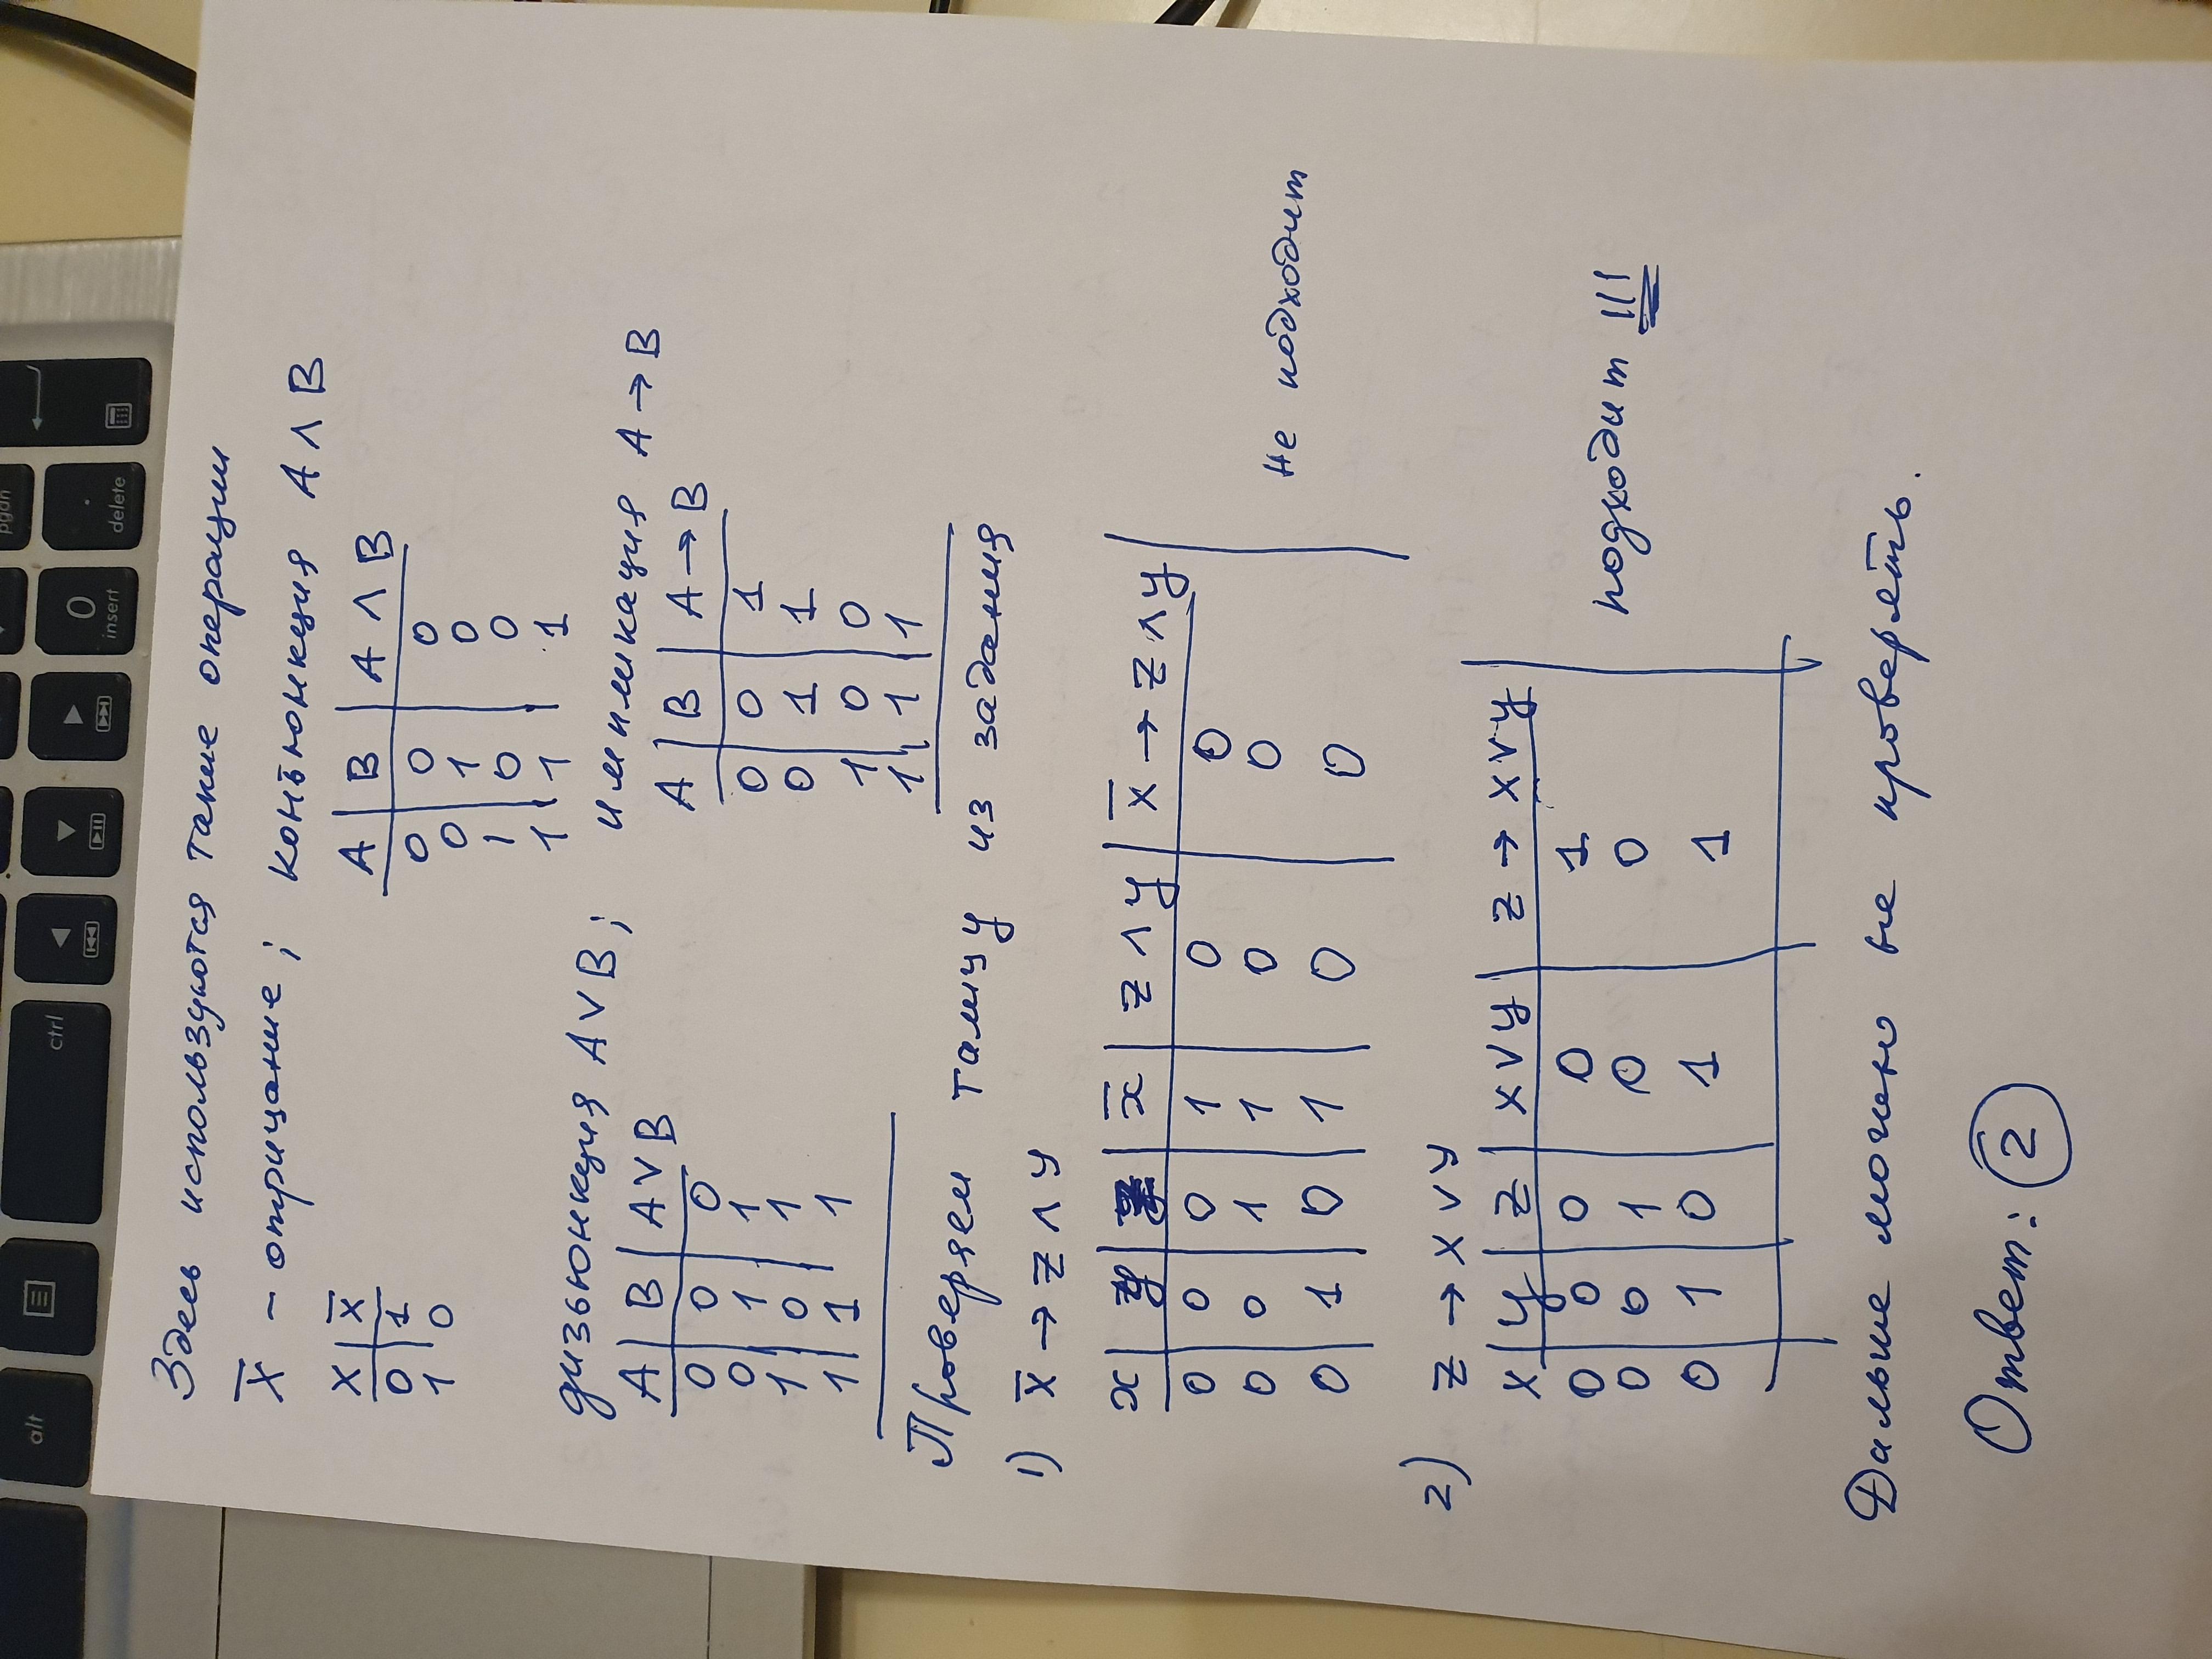 Здесь используются такие операции
X̅ - отрицание; конъюнкция A ∧ B
X | X̅
0 | 1
1 | 0
A | B | A ∧ B
0 | 0 | 0
0 | 1 | 0
1 | 0 | 0
1 | 1 | 1
дизъюнкция A ∨ B; импликация A → B
A | B | A ∨ B
0 | 0 | 0
0 | 1 | 1
1 | 0 | 1
1 | 1 | 1
A | B | A → B
0 | 0 | 1
0 | 1 | 1
1 | 0 | 0
1 | 1 | 1
Проверяем таблицу из задания
1) x̅ → z ∧ y
x | y | z | x̅ | z ∧ y | x̅ → z ∧ y
0 | 0 | 0 | 1 | 0 | 0
0 | 0 | 1 | 1 | 0 | 0
0 | 1 | 0 | 1 | 0 | 0
не подходит
2) z → x ∨ y
x | y | z | x ∨ y | z → x ∨ y
0 | 0 | 0 | 0 | 1
0 | 0 | 1 | 0 | 0
0 | 1 | 0 | 1 | 1
подходит !!!
Дальше можно не проверять.
Ответ: 2
alt
ctrl
0
insert
.
delete
pgdn